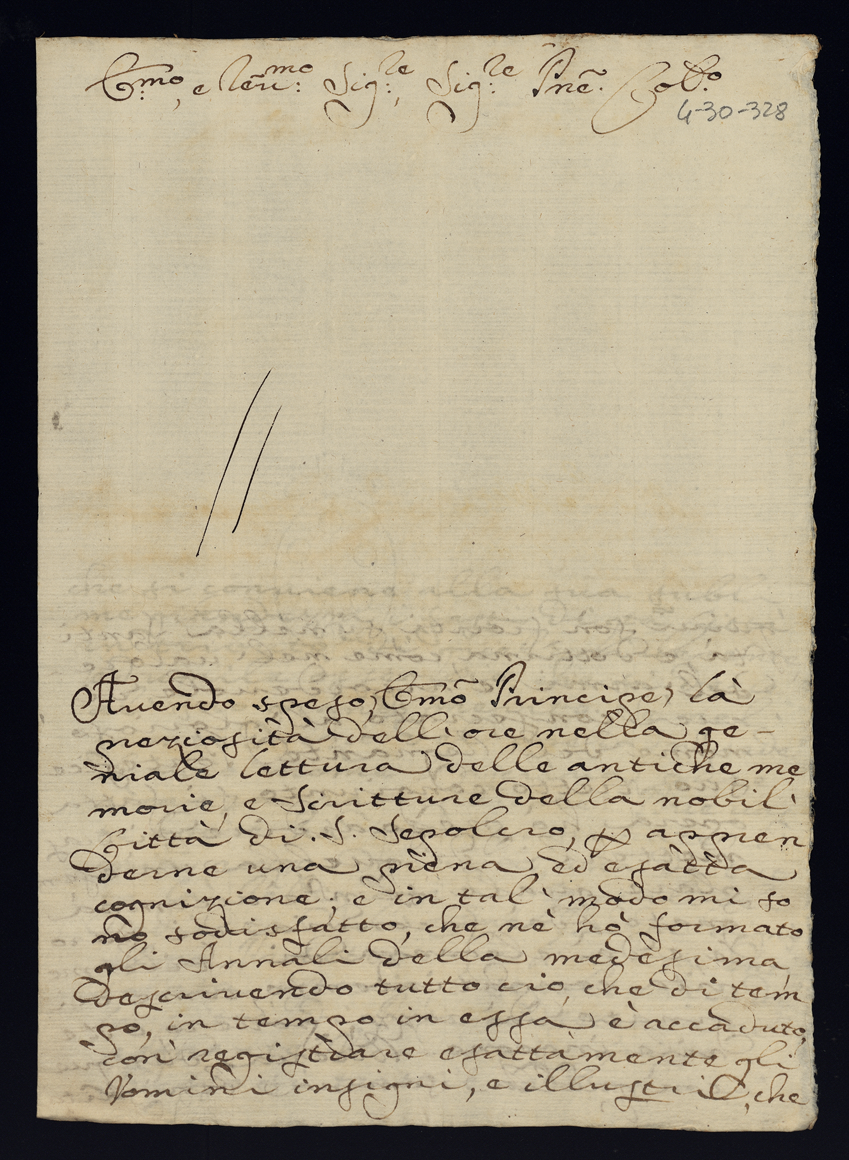 Em̃o, e Reũ:mo Sig:re, Sig:re Pñe. Col:o
4-30-328
Avendo speso, Em̃o Principe, là
preziosità dell'ore nella ge-
niale lettura delle antiche me
morie, e Scritture della nobil'
Città di S. Sepolcro, p appren
derne una piena, ed esatta
cognizione; e in tal' modo mi so
no sodisfatto, che nè hò formato
gli Annali della medesima,
descrivendo tutto ciò, che di tem
po, in tempo in essa è accaduto,
con' registrare esattamente gli
Uomini insigni, e illustri, che